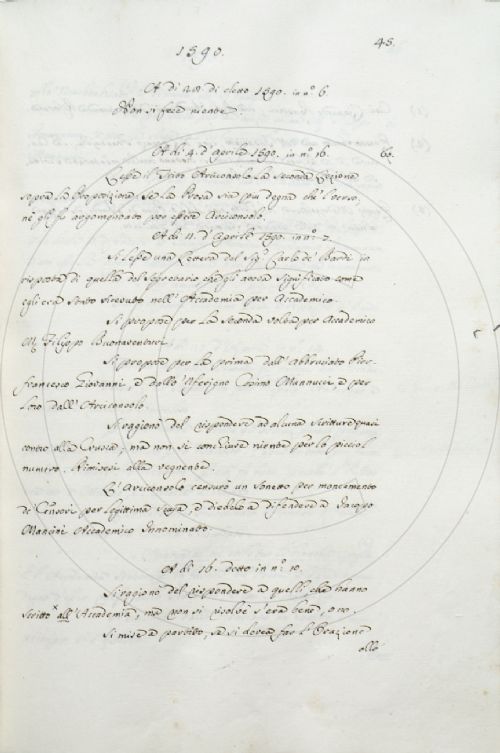 1590.
45.
A di 28. di detto 1590. in n.º 6
Non si fece niente.
A di 4. d'aprile 1590. in n.º 16.
66.
Lesse il Trito Arciconsolo la Seconda Lezione
sopra la Proposizione, se la Prosa sia più degna che 'l verso,
nè gli fu argomentato per essere Arciconsolo.
A di 11. d'Aprile 1590. in n.º 7.
Si lesse una Lettera del Sig.r Carlo de' Bardi in
risposta di quella del Segretario che gli aveva significato come
egli era stato ricevuto nell'Accademia per Accademico.
Si propose per la seconda volta per Accademico
M. Filippo Buonaventuri.
Si propose per la prima dall'Abbruciato Pier-
francesco Giovanni, e dallo Aferigno Cosimo Mannucci, e per
loro dall'Arciconsolo.
Si ragionò del rispondere ad alcuna scrittura quasi
contro alla Crusca, ma non si concluse niente per lo picciol
numero. Rimisesi alla vegnente.
L'Arciconsolo censurò un Sonetto per mancamento
di Censori per legittima scusa, e diedelo a difendere a Jacopo
Mancini Accademico Innominato.
A di 16. detto in n.º 10.
Si ragionò del rispondere a quelli che hanno
scritto all'Accademia, ma non si risolvè s'era bene, o no.
Si mise a partito, se si doveva far l'Orazione
allo